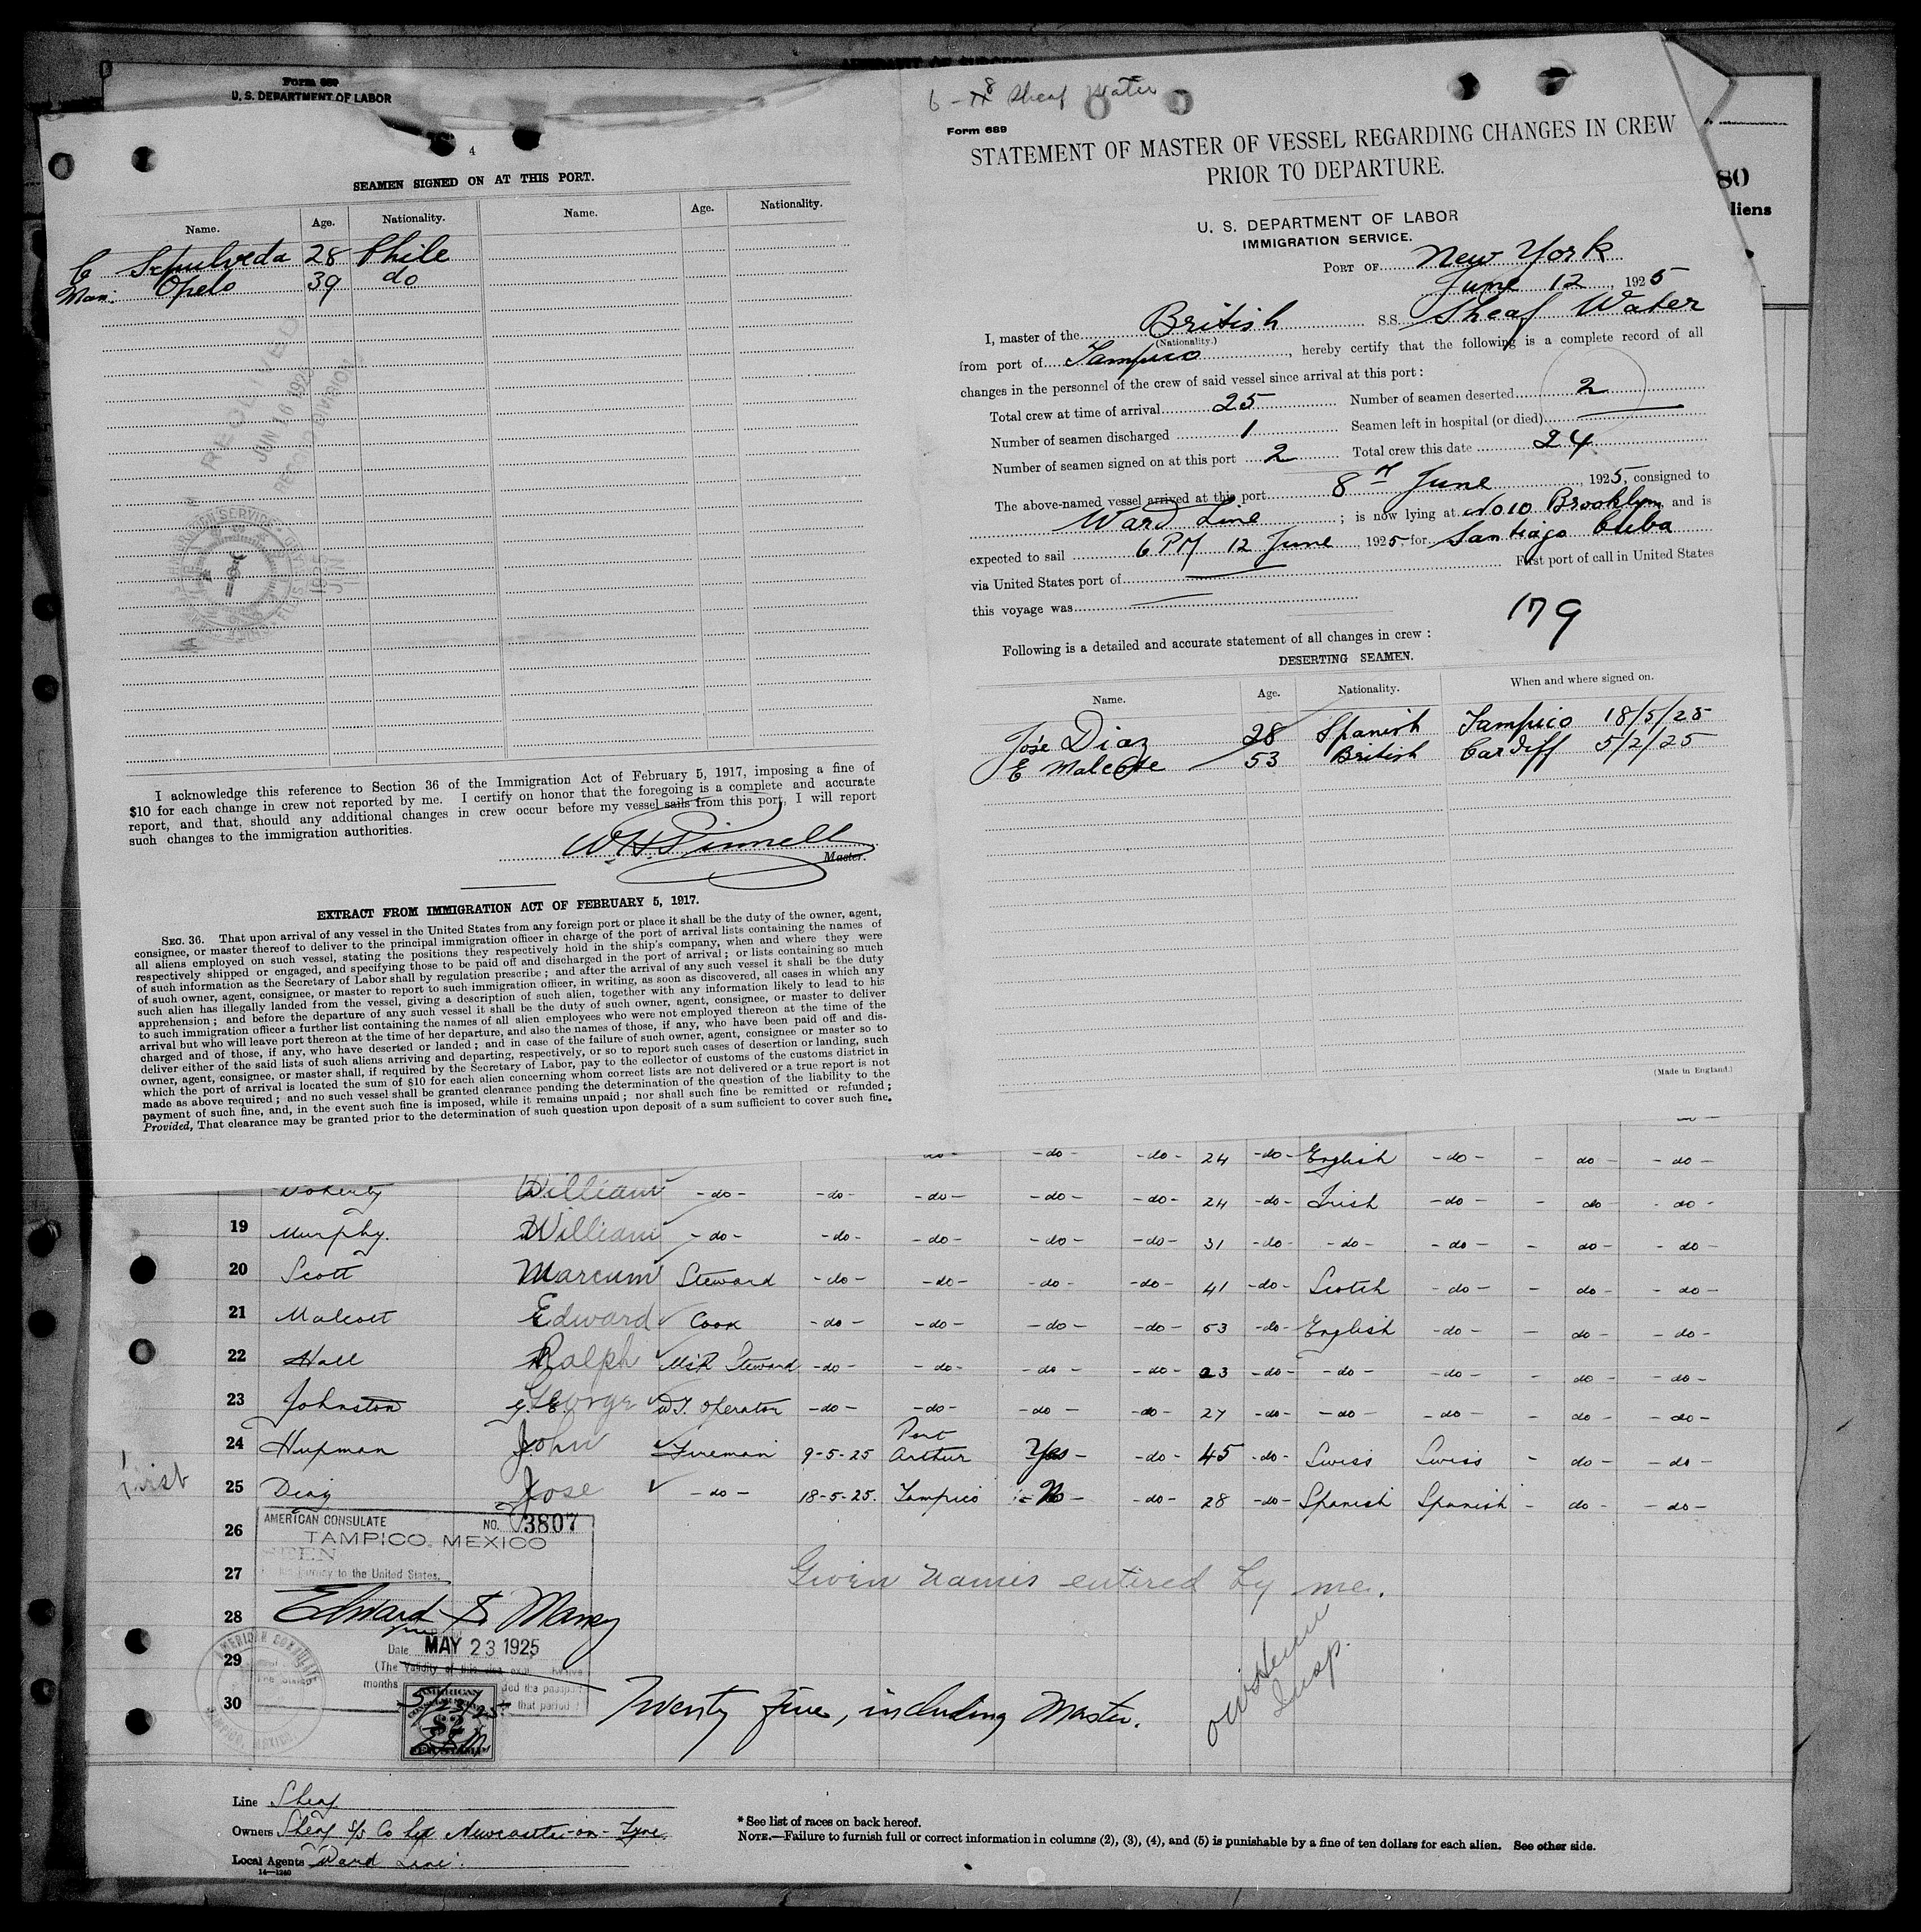 Form 689
U. S. DEPARTMENT OF LABOR
4
SEAMEN SIGNED ON AT THIS PORT.
Name. Age. Nationality. Name. Age. Nationality.
C Sepulveda 28 Chile
Man. Opelo 39 do
RECEIVED
JUN 16 1925
RECORD DIVISION
I acknowledge this reference to Section 36 of the Immigration Act of February 5, 1917, imposing a fine of
$10 for each change in crew not reported by me. I certify on honor that the foregoing is a complete and accurate
report, and that, should any additional changes in crew occur before my vessel sails from this port, I will report
such changes to the immigration authorities.
W. H. Pinnell
Master.
EXTRACT FROM IMMIGRATION ACT OF FEBRUARY 5, 1917.
SEC. 36. That upon arrival of any vessel in the United States from any foreign port or place it shall be the duty of the owner, agent,
consignee, or master thereof to deliver to the principal immigration officer in charge of the port of arrival lists containing the names of
all aliens employed on such vessel, stating the positions they respectively hold in the ship's company, when and where they were
respectively shipped or engaged, and specifying those to be paid off and discharged in the port of arrival; or lists containing so much
of such information as the Secretary of Labor shall by regulation prescribe; and after the arrival of any such vessel it shall be the duty
of such owner, agent, consignee, or master to report to such immigration officer, in writing, as soon as discovered, all cases in which any
such alien has illegally landed from the vessel, giving a description of such alien, together with any information likely to lead to his
apprehension; and before the departure of any such vessel it shall be the duty of such owner, agent, consignee, or master to deliver
to such immigration officer a further list containing the names of all alien employees who were not employed thereon at the time of the
arrival but who will leave port thereon at the time of her departure, and also the names of those, if any, who have been paid off and dis-
charged and of those, if any, who have deserted or landed; and in case of the failure of such owner, agent, consignee or master so to
deliver either of the said lists of such aliens arriving and departing, respectively, or so to report such cases of desertion or landing, such
owner, agent, consignee, or master shall, if required by the Secretary of Labor, pay to the collector of customs of the customs district in
which the port of arrival is located the sum of $10 for each alien concerning whom correct lists are not delivered or a true report is not
made as above required; and no such vessel shall be granted clearance pending the determination of the question of the liability to the
payment of such fine, and, in the event such fine is imposed, while it remains unpaid; nor shall such fine be remitted or refunded;
Provided, That clearance may be granted prior to the determination of such question upon deposit of a sum sufficient to cover such fine.
6 - 8 Sheaf Water
Form 689
STATEMENT OF MASTER OF VESSEL REGARDING CHANGES IN CREW
PRIOR TO DEPARTURE.
U. S. DEPARTMENT OF LABOR
IMMIGRATION SERVICE.
PORT OF New York
June 12, 1925
I, master of the British S.S. Sheaf Water
(Nationality.)
from port of Tampico, hereby certify that the following is a complete record of all
changes in the personnel of the crew of said vessel since arrival at this port:
Total crew at time of arrival 25 Number of seamen deserted 2
Number of seamen discharged 1 Seamen left in hospital (or died)
Number of seamen signed on at this port 2 Total crew this date 24
The above-named vessel arrived at this port 8th June, 1925, consigned to
Ward Line; is now lying at No 10 Brooklyn and is
expected to sail 6 PM 12 June, 1925 for Santiago Cuba
via United States port of First port of call in United States
this voyage was
179
Following is a detailed and accurate statement of all changes in crew:
DESERTING SEAMEN.
Name. Age. Nationality. When and where signed on.
José Diaz 28 Spanish Tampico 18/5/25
E Malcott 53 British Cardiff 5/2/25
(Made in England.)
80
liens
do - -do- -do- 24 -do- English -do- - do - -do-
Doherty William -do- -do- -do- -do- -do- 24 -do- Irish -do- - do - -do-
19 Murphy. William -do- -do- -do- -do- -do- 31 -do- -do- -do- - do - -do-
20 Scott Marcum Steward -do- -do- -do- -do- 41 -do- Scotch -do- - do - -do-
21 Malcott Edward Cook -do- -do- -do- -do- 53 -do- English -do- - do - -do-
22 Hall Ralph M'sR Steward -do- -do- -do- -do- 23 -do- -do- -do- - do - -do-
23 Johnston G. E. George W.T. Operator -do- -do- -do- -do- 27 -do- -do- -do- - do - -do-
24 Hupman John Fireman 9-5-25 Port Arthur Yes -do- 45 -do- Swiss Swiss - do - -do-
first 25 Diaz Jose -do- 18-5-25. Tampico No -do- 28 -do- Spanish Spanish - do - -do-
26
AMERICAN CONSULATE NO. 3807
TAMPICO, MEXICO
SEEN
journey to the United States.
27 Given names entered by me.
28 Edward S. Maney
Insp.
29 Date MAY 23 1925
(The validity of this visa
months
30 Twenty five, including Master.
5/23/25
$2
FEE STAMP
AMERICAN CONSULATE
TAMPICO, MEXICO
Line Sheaf
Owners Sheaf S/S Co Ltd Newcastle-on-Tyne.
Local Agents Ward Line.
14—1240
* See list of races on back hereof.
NOTE.—Failure to furnish full or correct information in columns (2), (3), (4), and (5) is punishable by a fine of ten dollars for each alien. See other side.